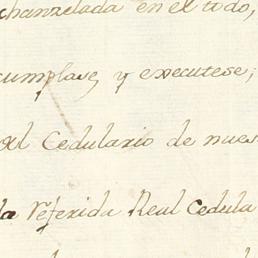 chanzelada en el todo,
cumplase, y executese;
al Cedulario de nues
la referida Real Cedula